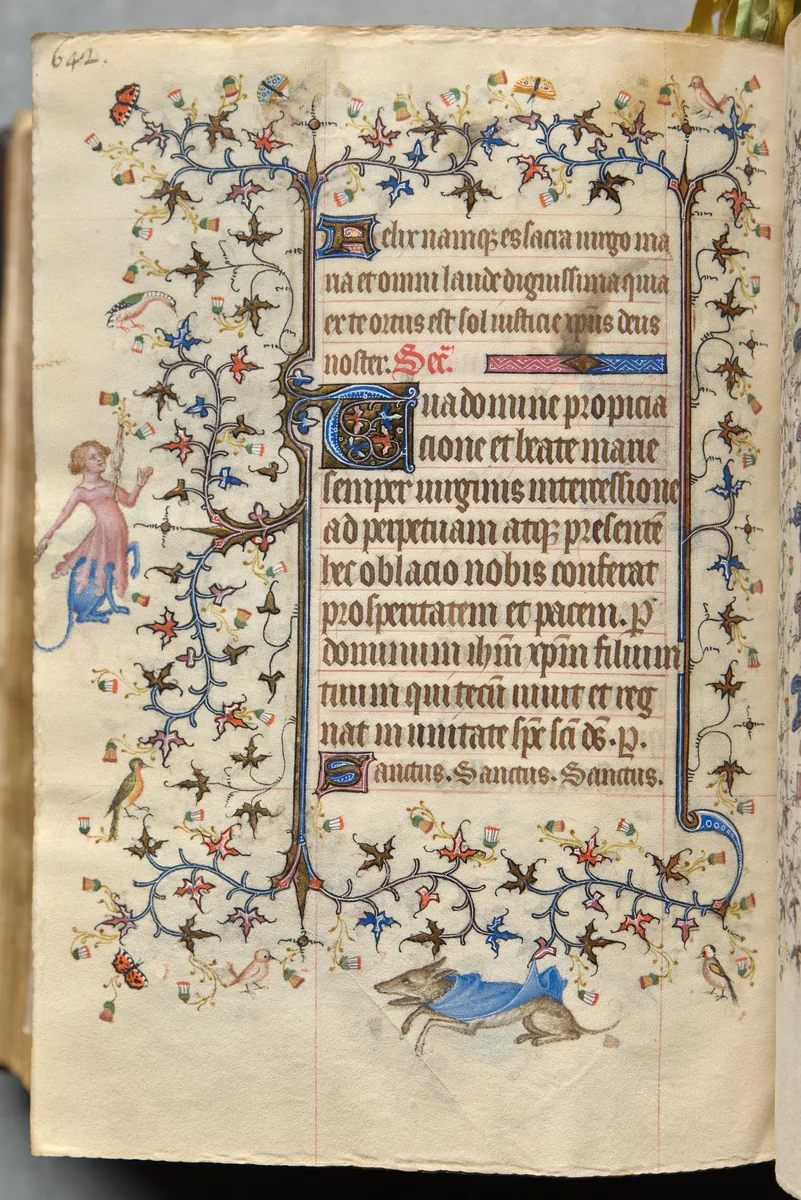 642.
Felix namq; es sacra uirgo ma
ria et omni laude dignissima quia
ex te ortus est sol iusticie xp̄us deus
noster. Secr̄.
Tua domine propicia
cione et beate marie
semper uirginis intercessione
ad perpetuam atq; presentē
hec oblacio nobis conferat
prosperitatem et pacem. P
dominum ihm̄ xp̄m filium
tuum qui tecū uiuit et reg
nat in unitate sp̄c sc̄i ds̄. P.
Sanctus. Sanctus. Sanctus.